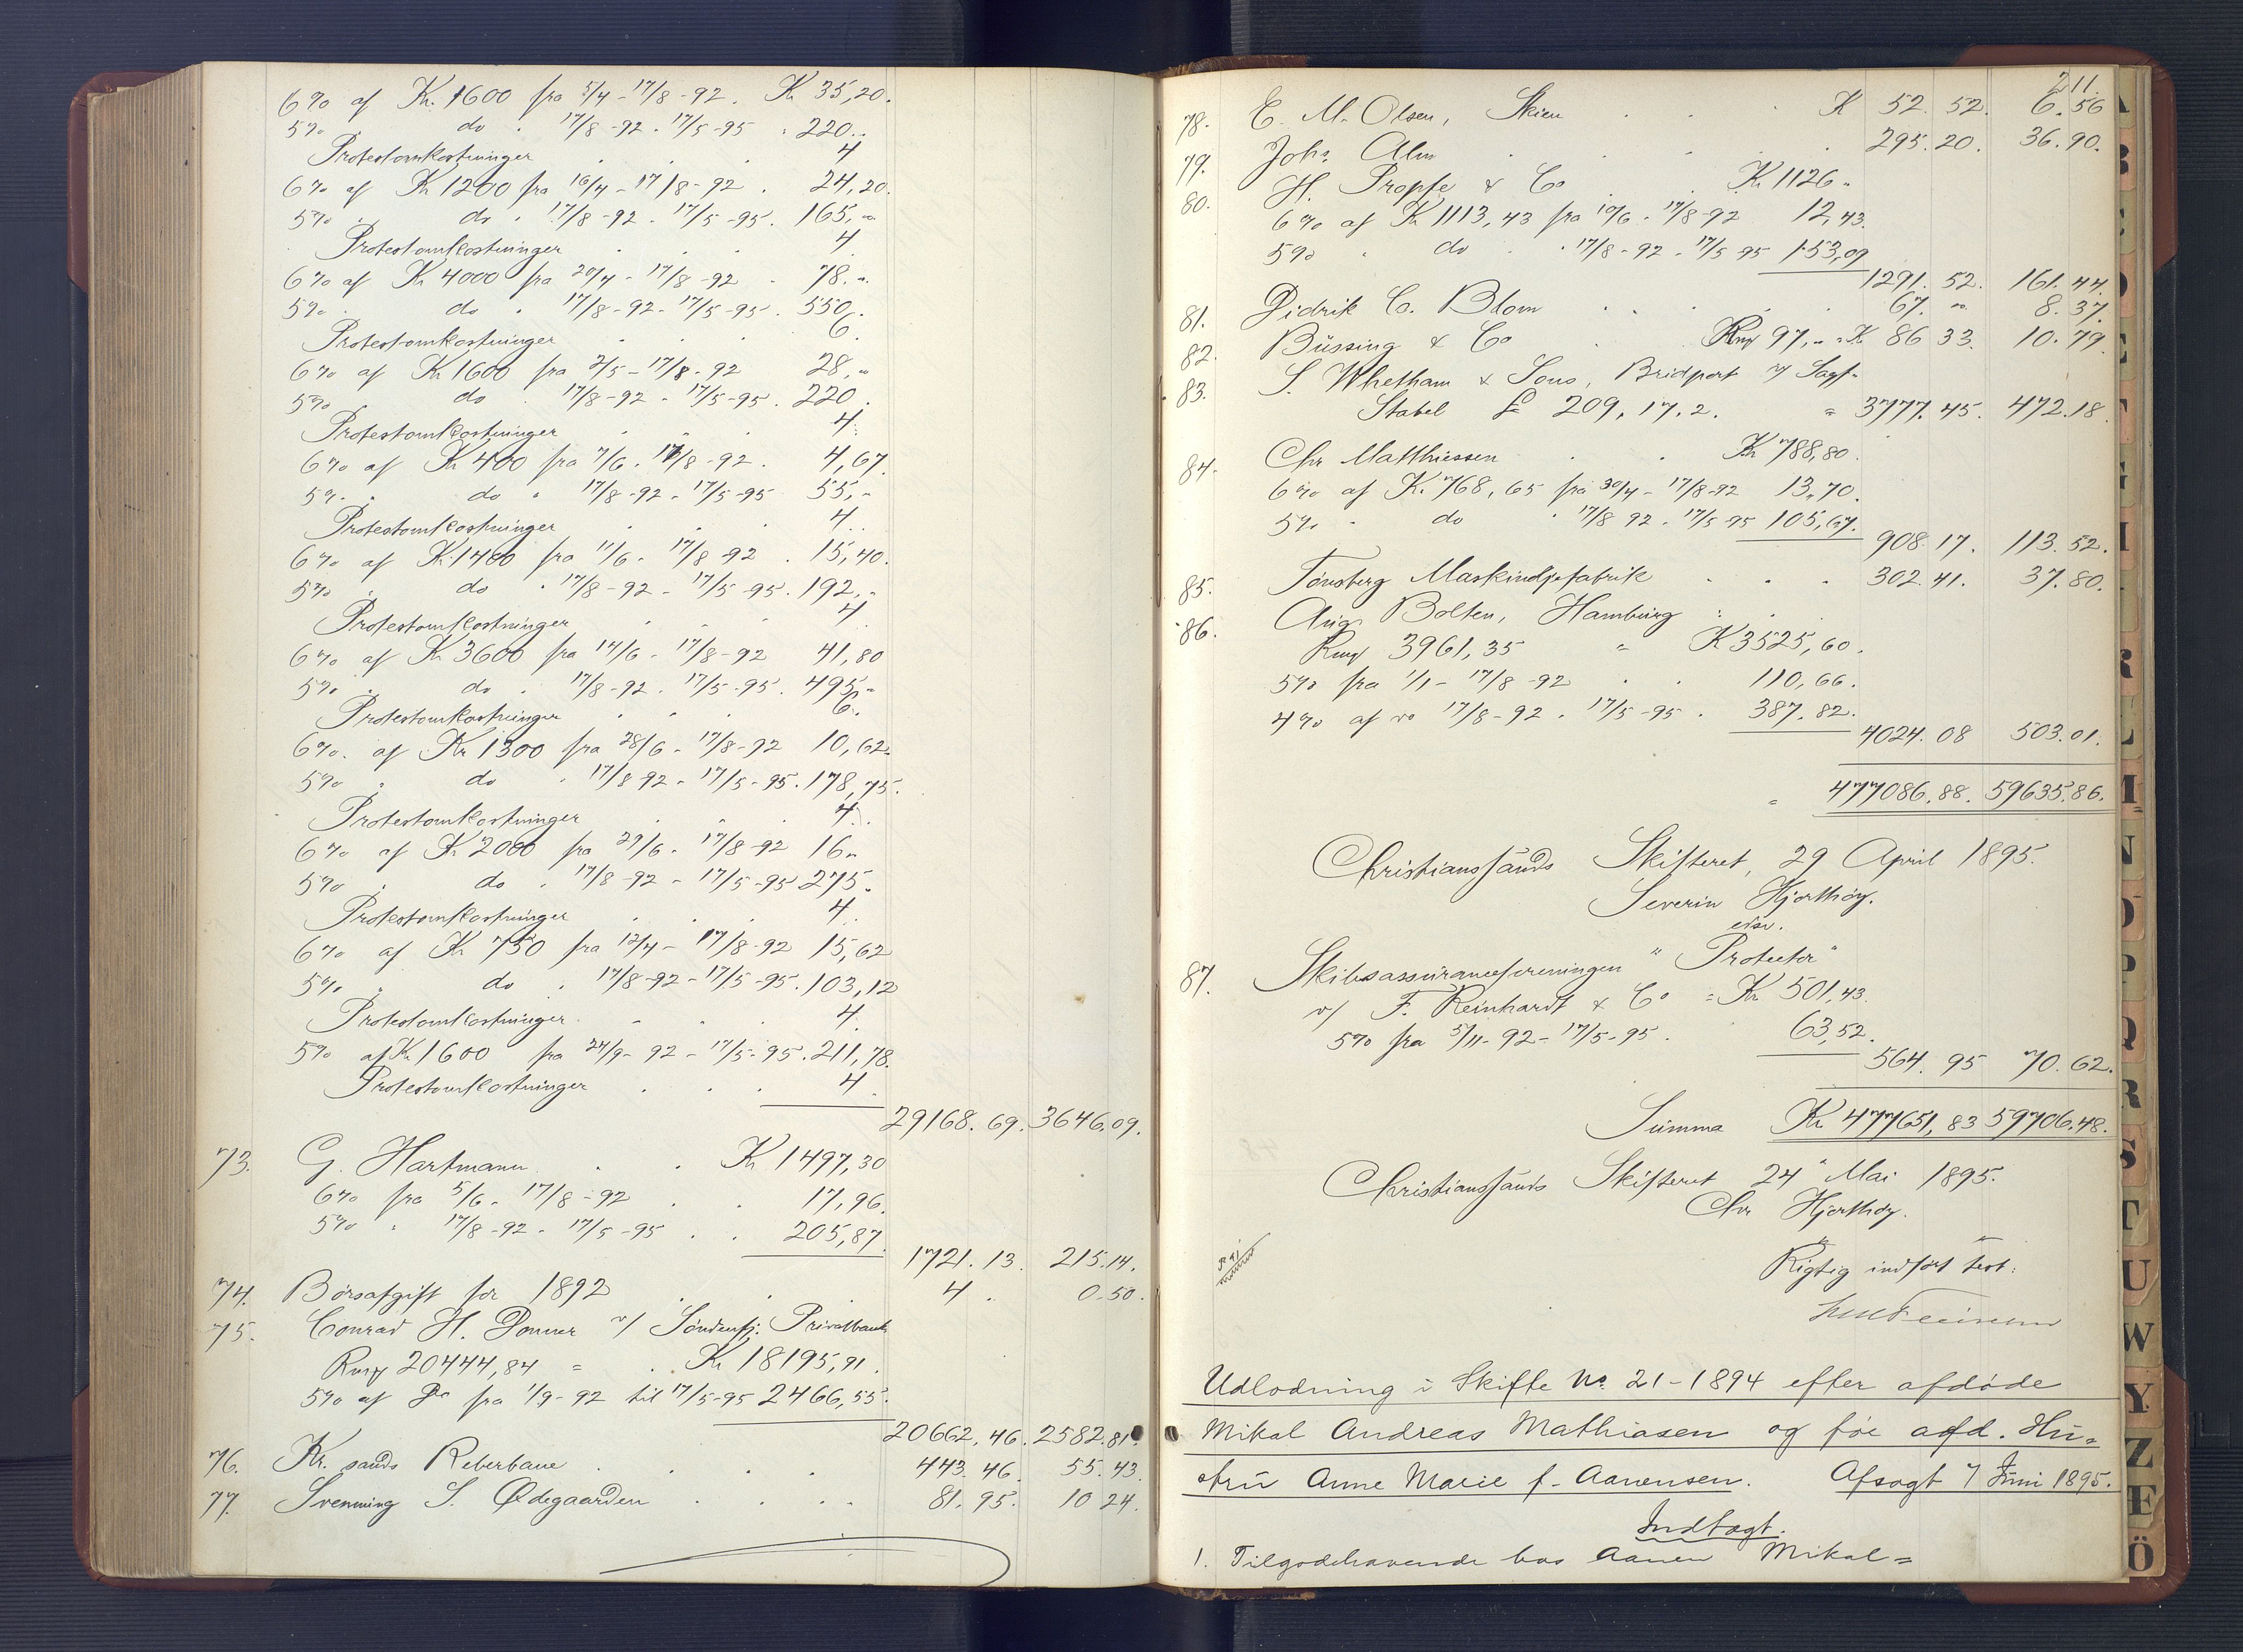 6% af Kr. 1600 fra 5/4 - 17/8 - 92. Kr 35,20.
5% " do " 17/8 - 92 - 17/5 - 95 " 220..
Protestomkostninger . . . 4
6% af Kr 1200 fra 16/4 - 17/8 - 92 . 24,20.
5% " do " 17/8 - 92 - 17/5 - 95. 165,"
Protestomkostninger . . . 4
6% af Kr 4000 fra 20/4 - 17/8 - 92 - 78."
5% " do " 17/8 - 92 - 17/5 - 95. 550.
Protestomkostninger . . . 6.
6% af Kr 1600 fra 2/5 - 17/8 - 92 28,"
5% do " 17/8 - 92 - 17/5 - 95. 220.
Protestomkostninger . . . 4.
6% af Kr 400 fra 7/6 - 17/8 - 92. 4,67.
5% " do " 17/8 - 92 - 17/5 - 95 55,"
Protestomkostninger . . . 4..
6% af Kr. 1400 fra 11/6 - 17/8 - 92 . 15,40.
5% " do " 17/8 - 92 - 17/5 - 95. 192,"
Protestomkostninger . . . 4
6% af Kr 3600 fra 14/6 - 17/8 - 92 41,80
5% " do " 17/8 - 92 - 17/5 - 95. 495"
Protestomkostninger . . . 6.
6% af Kr 1300 fra 28/6 - 17/8 - 92 10,62.
5% " do " 17/8 92 - 17/5 - 95. 178,75.
Protestomkostninger . . . 4.
6% af Kr 2000 fra 29/6 - 17/8 - 92 16"
5% " do " 17/8 - 92 - 17/5 - 95 275.
Protestomkostninger . . . 4.
6% af Kr 750 fra 12/4 - 17/8 - 92 15,62
5% " do " 17/8 - 92 - 17/5 - 95. 103,12
Protestomkostninger . . . 4.
5% af Kr. 1600 fra 24/9 - 92 - 17/5 - 95. 211,78.
Protestomkostninger . . . 4.
29168.69. 3646.09.
73. G. Hartmann . . Kr 1497,30
6% fra 5/6 - 17/8 - 92 . . 17,96.
5% " 17/8 - 92 - 17/5 - 95 . . 205,87.
1721.13. 215.14.
74. Börsafgift for 1892 . . . 4. 0.50.
75. Conrad H. Donner v/ Söndenfj. Privatbank
Rmk 20444,84 = . Kr 18195,91.
5% af Do fra 1/9 - 92 til 17/5 - 95 2466,55.
20662,46. 2582.81.
76. Kr. sands Reberbane . . . . 443.46. 55.43.
77. Svenning S. Ødegaarden . . . . 81.95. 10 24.
211.
78. E. M. Olsen, Skien . . . K 52.52. 6.56
79. Johs. Alm . . . . 295.20. 36.90.
80. H. Propfe & Co . . Kr 1126 "
6% af Kr 1113,43 fra 10/6 - 17/8 - 92 12,43.
5% " do " 17/8 - 92 - 17/5 95 153,09
1291.52. 161.44.
81. Didrik C. Blom . . . . 67." 8.37.
82. Büssing & Co . Rmk 97," = Kr 86 33. 10.79.
83. S. Whetham & Sons, Bridport v/ Sagf.
Stabel £ 209,17,2. = 3777.45. 472.18.
84. Chr Matthiessen . . Kr 788,80.
6% af Kr. 768,65 fra 30/4 - 17/8 - 92 13,70.
5% " do " 17/8 92 - 17/5 - 95 105,67.
908.17. 113.52.
85. Tönsberg Maskindjefabrik . . . 302.41. 37.80.
86. Aug. Bolten, Hamburg . .
Rmk 3961,35 = K 3525,60.
5% fra 1/1 - 17/8 - 92 . . 110,66.
4% af do 17/8 - 92 - 17/5 - 95 . 387.82.
4024.08 503.01.
= 477086.88. 59635.86.
Christianssands Skifteret, 29 April 1895.
Severin Hjorthøy.
edsv.
87. Skibsassuranceforeningen "Protector"
v/ F. Reinhardt & Co = Kr 501,43.
5% fra 5/11 - 92 - 17/5 - 95 . 63,52.
564.95 70.62.
Summa Kr 477651,83 59706.48.
Christianssands Skifteret 24 Mai 1895.
Chr Hjorthøy.
Rigtig indført test:
Udlodning i Skifte No. 21 - 1894 efter afdöde
Mikal Andreas Mathiasen og före afd. Hu=
stru Anne Marie f. Aanensen. Afsagt 7 Juni 1895.
Indtægt.
1. Tilgodehavende hos Aanen Mikal=
A B D E F G I K L M N O P Q R S T U W Y Z Æ Ö